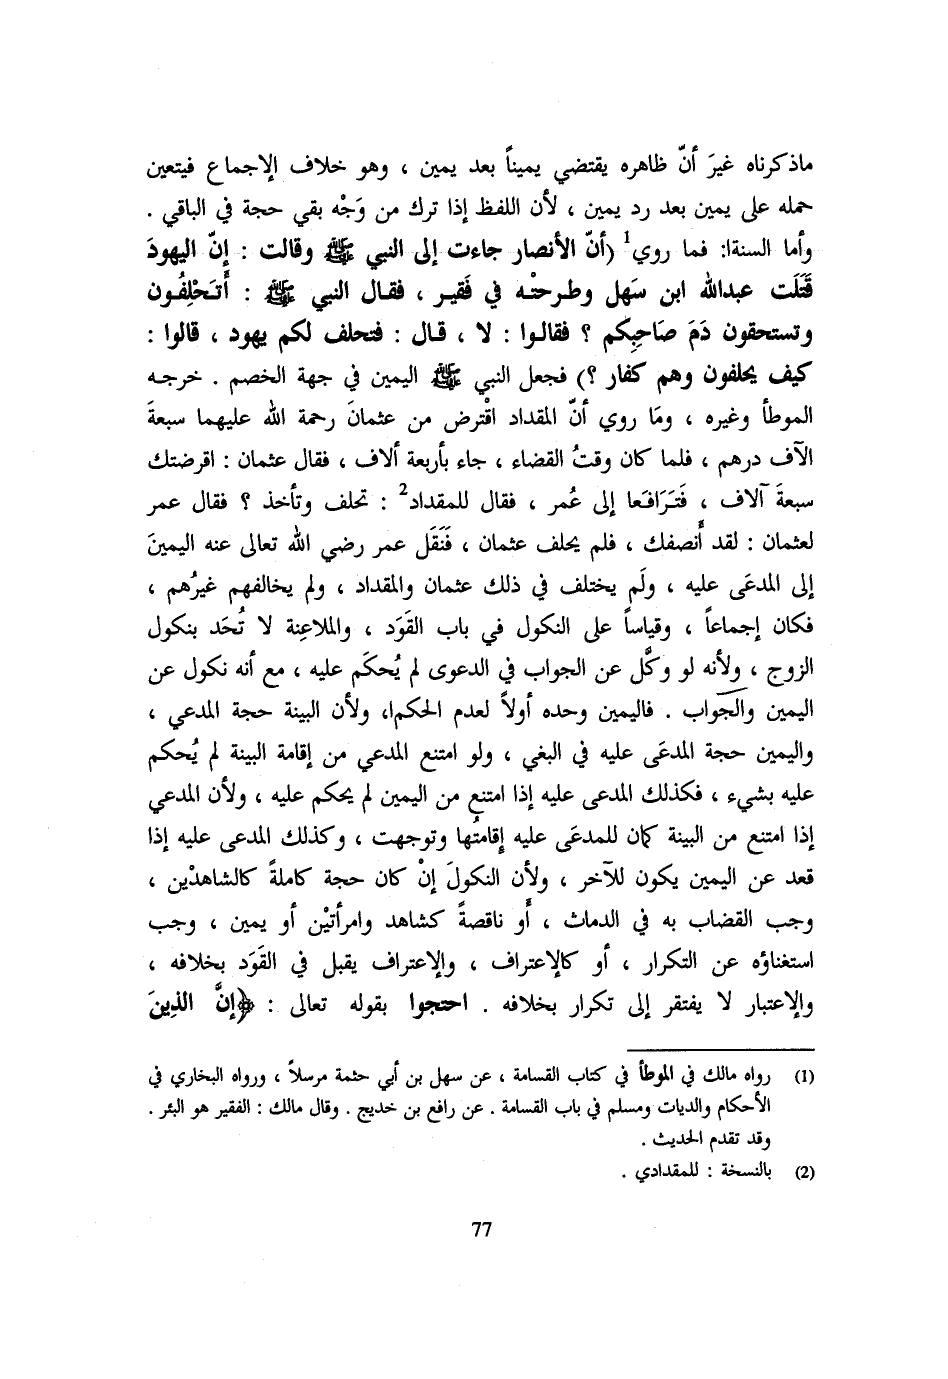 ماذكرناه غيرَ أنّ ظاهره يقتضي يميناً بعد يمين ، وهو خلاف الإجماع فيتعين
حمله على يمين بعد رد يمين ، لأن اللفظ إذا ترك من وَجْه بقي حجة في الباقي .
وأما السنةا: فما روي1 (أنّ الأنصار جاءت إلى النبي ﷺ وقالت : إنّ اليهودَ
قَتَلَت عبدالله ابن سَهل وطرحتْه في فَقير ، فقال النبي ﷺ : أَتَحْلِفُون
وتستحقون دَمَ صَاحِبِكم ؟ فقالوا : لا ، قال : فتحلف لكم يهود ، قالوا :
كيف يحلفون وهم كفار ؟) فجعل النبي ﷺ اليمين في جهة الخصم . خرجه
الموطأ وغيره ، ومَا روي أنّ المقداد اقْترض من عثمانَ رحمة الله عليهما سبعةَ
الآف درهم ، فلما كان وقتُ القضاء ، جاء بأربعة ألاف ، فقال عثمان : اقرضتك
سبعةَ آلاف ، فَتَرَافَعا إلى عُمر ، فقال للمقداد2 : تحلف وتأخذ ؟ فقال عمر
لعثمان : لقد أَنصفك ، فلم يحلف عثمان ، فَنَقَل عمر رضي الله تعالى عنه اليمينَ
إلى المدعَى عليه ، ولَم يختلف في ذلك عثمان والمقداد ، ولم يخالفهم غيرُهم ،
فكان إجماعاً ، وقياساً على النكول في باب القَوَد ، والملاعِنة لا تُحَد بنكول
الزوج ، ولأنه لو وكَّل عن الجواب في الدعوى لم يُحكَم عليه ، مع أنه نكول عن
اليمين والجَواب . فاليمين وحده أولاً لعدم الحكم!، ولأن البينة حجة المدعي ،
واليمين حجة المدعَى عليه في البغي ، ولو امتنع المدعي من إقامة البينة لم يُحكم
عليه بشيء ، فكذلك المدعى عليه إذا امتنع من اليمين لم يحكم عليه ، ولأن المدعي
إذا امتنع من البينة كان للمدعَى عليه إقامتُها وتوجهت ، وكذلك المدعى عليه إذا
قعد عن اليمين يكون للآخر ، ولأن النكولَ إنْ كان حجة كاملةً كالشاهدْين ،
وجب القضاب به في الدماث ، أَو ناقصةً كشاهد وامرأتيْن أو يمين ، وجب
استغناؤه عن التكرار ، أو كالإعتراف ، والإعتراف يقبل في القَوَد بخلافه ،
والإعتبار لا يفتقر إلى تكرار بخلافه . احتجوا بقوله تعالى : ﴿إنَّ الذِينَ
(1) رواه مالك في الموطأ في كتاب القسامة ، عن سهل بن أبي حثمة مرسلاً ، ورواه البخاري في
الأحكام والديات ومسلم في باب القسامة . عن رافع بن خديج . وقال مالك : الفقير هو البئر .
وقد تقدم الحديث .
(2) بالنسخة : للمقدادي .
77